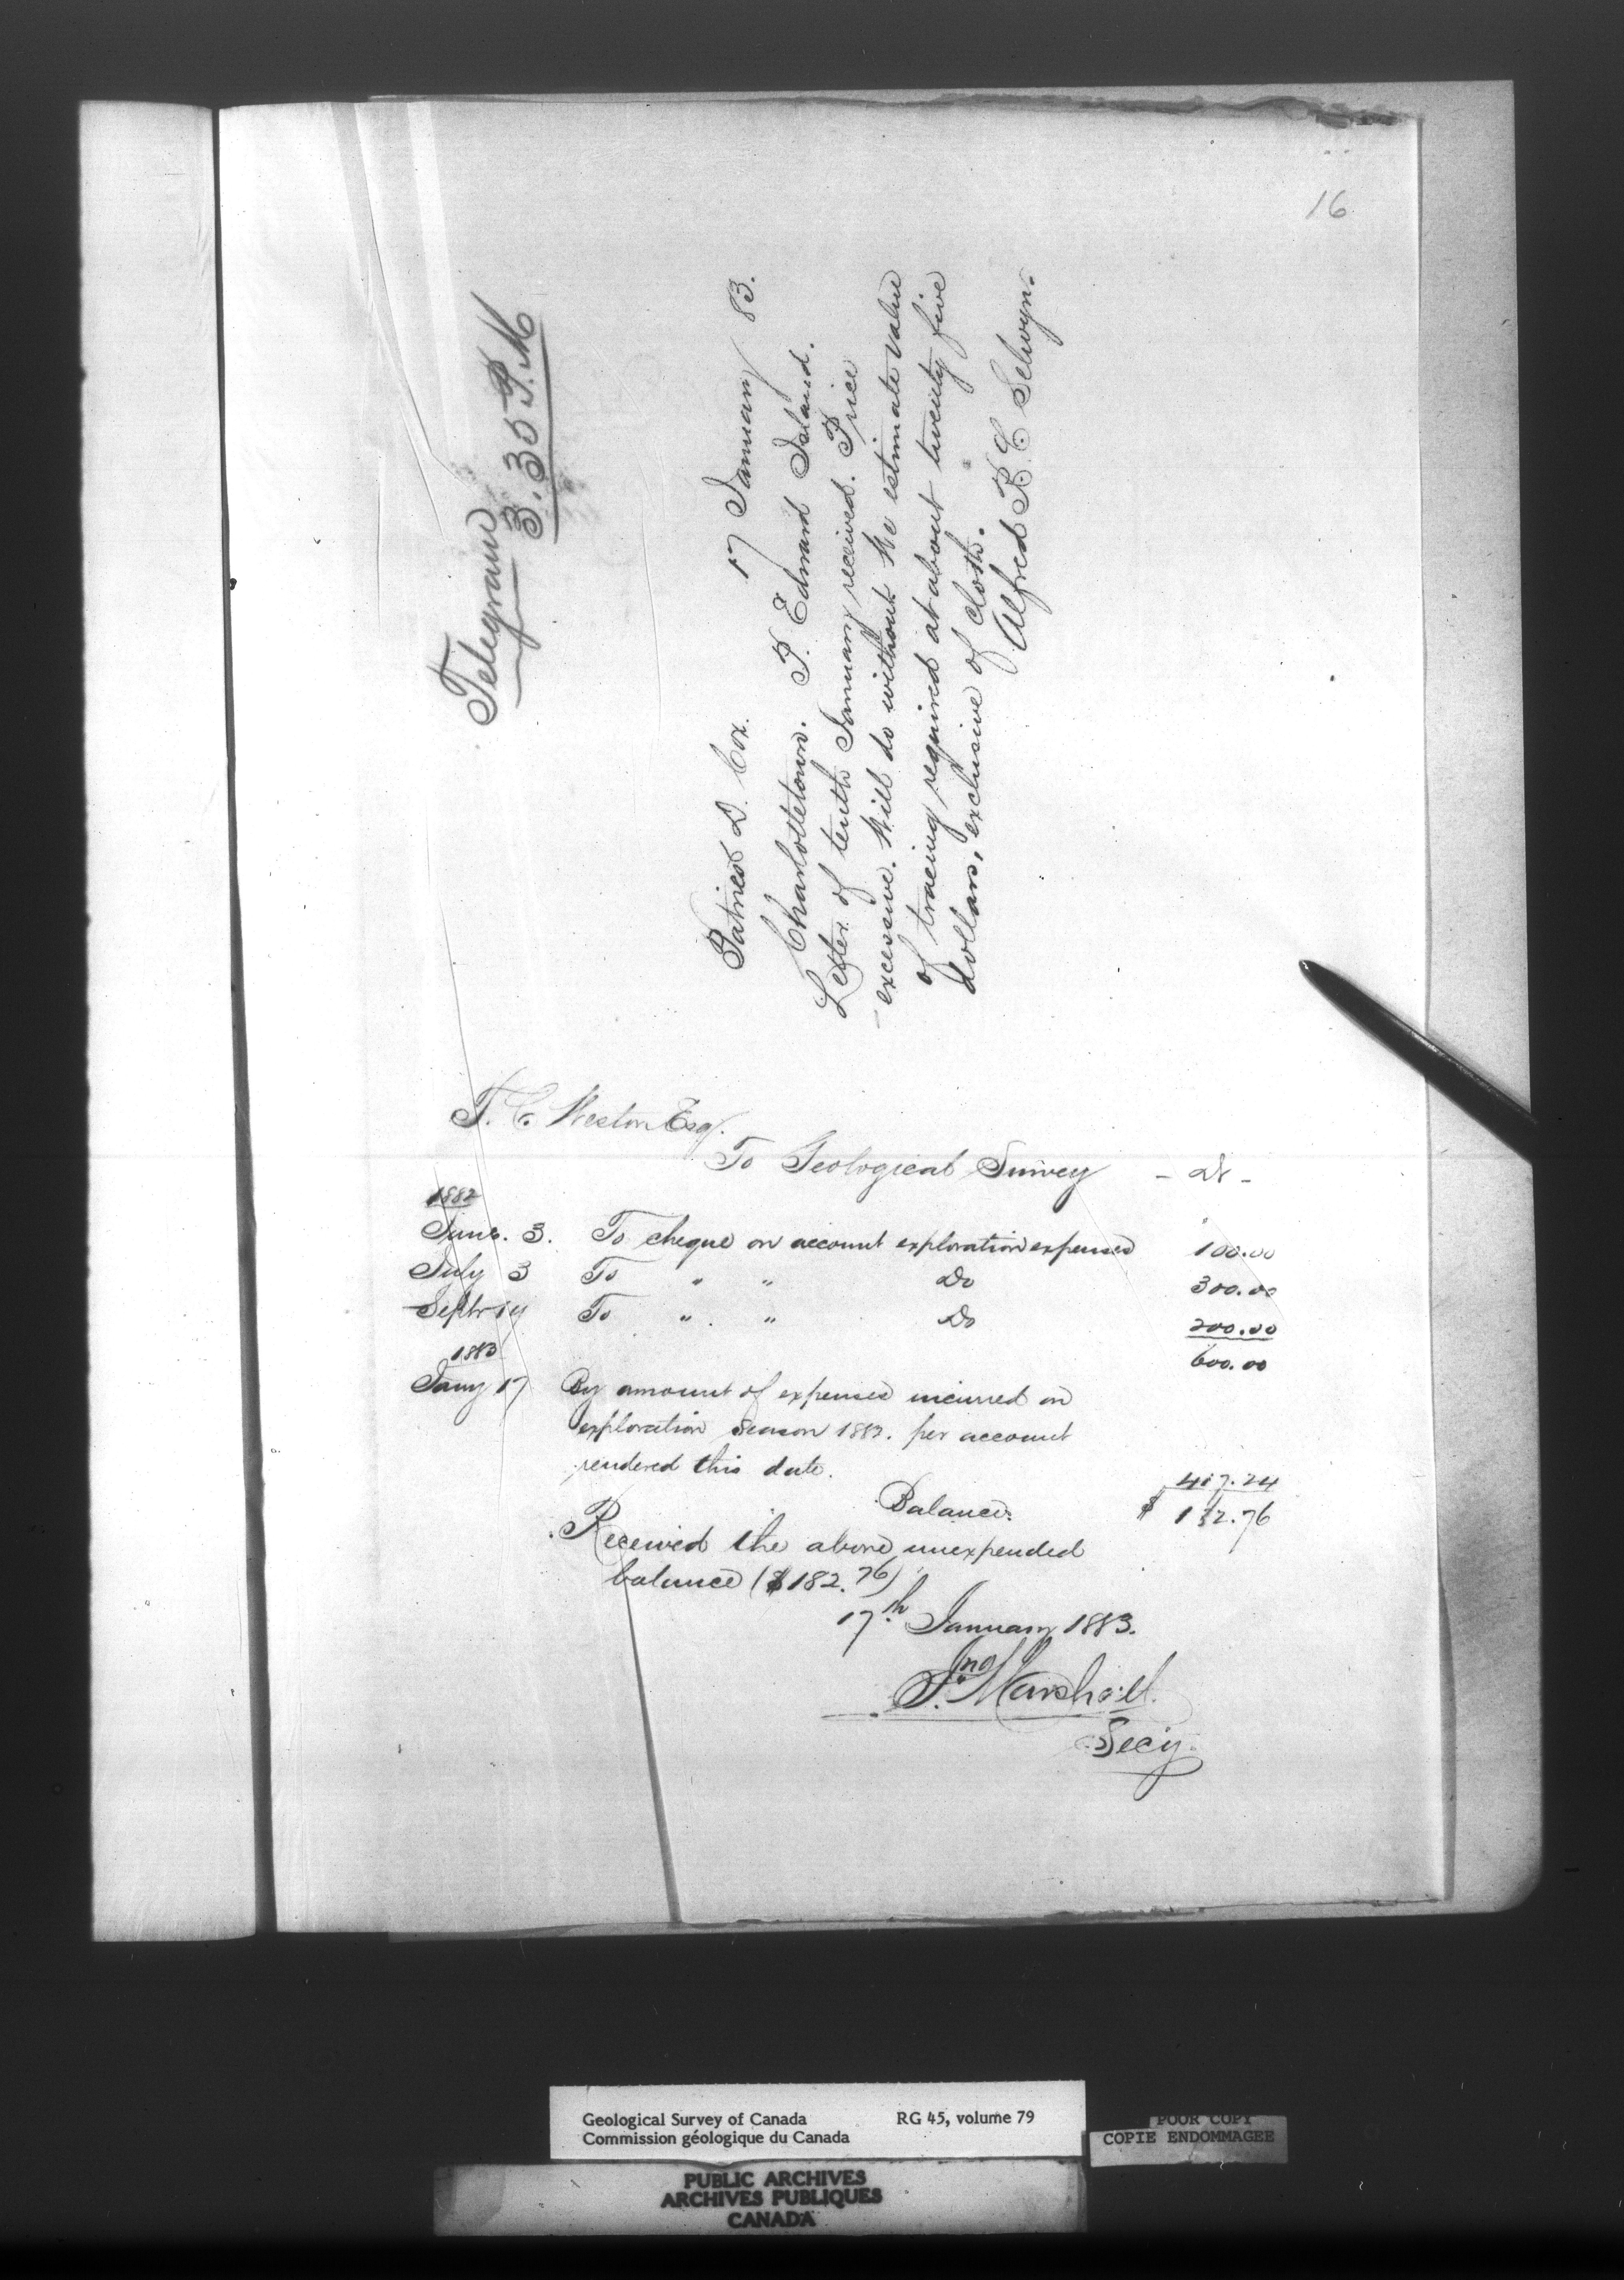 16
Telegram
3.35 P.M
17 January 83.
D. Cox.
Charlottetown. P. Edward Island.
Letter of tenth January received. Price
excessive. Will do without. We estimate value
of tracing required at about twenty five
dollars, exclusive of cloth.
Alfred R. C Selwyn.
T. C. Weston Esq.
To Geological Survey - Dr -
1882
June. 3. To cheque on account exploration expenses 100.00
July 3 To " " Do 300.00
Septr 14 To " " Do 200.00
600.00
1883
Jany 17 By amount of expenses incurred on
exploration season 1882. per account
rendered this date. 417.24
Balance. $ 182.76
Received the above unexpended
balance ($182.76)
17th January 1883.
Jno Marshall.
Secy.
Geological Survey of Canada RG 45, volume 79
Commission géologique du Canada
POOR COPY
COPIE ENDOMMAGEE
PUBLIC ARCHIVES
ARCHIVES PUBLIQUES
CANADA